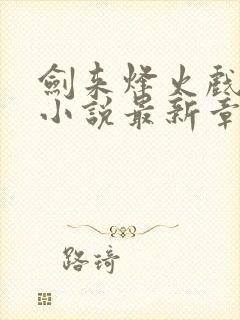 劍来烽火戲
小說最新章
路琦